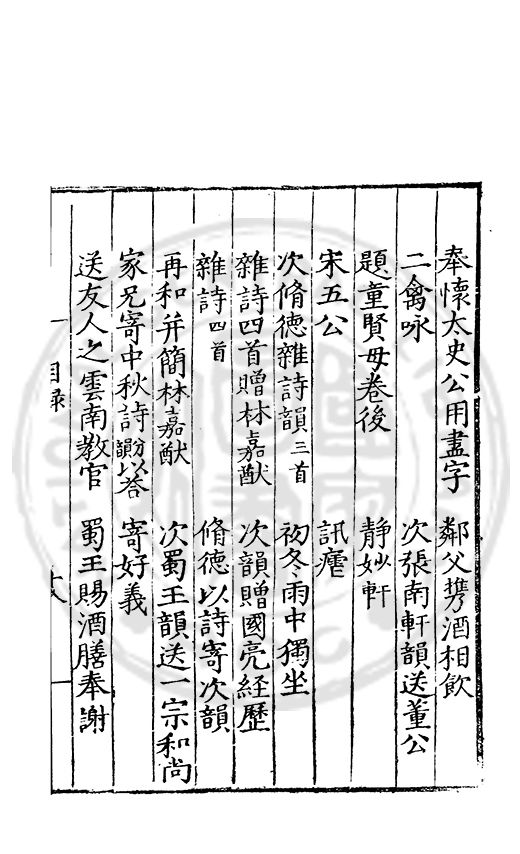 奉懷太史公用盡字　鄰父携酒相飲
二禽咏　次張南軒韻送董公
題童賢母卷後　靜妙軒
宋五公　訊瘧
次脩德雜詩韻三首　初冬雨中獨坐
雜詩四首贈林嘉猷　次韻贈國亮經歷
雜詩四首　脩德以詩寄次韻
再和并簡林嘉猷　次蜀王韻送一宗和尚
家兄寄中秋詩　答　寄好義
送友人之雲南教官　蜀王賜酒膳奉謝
目録